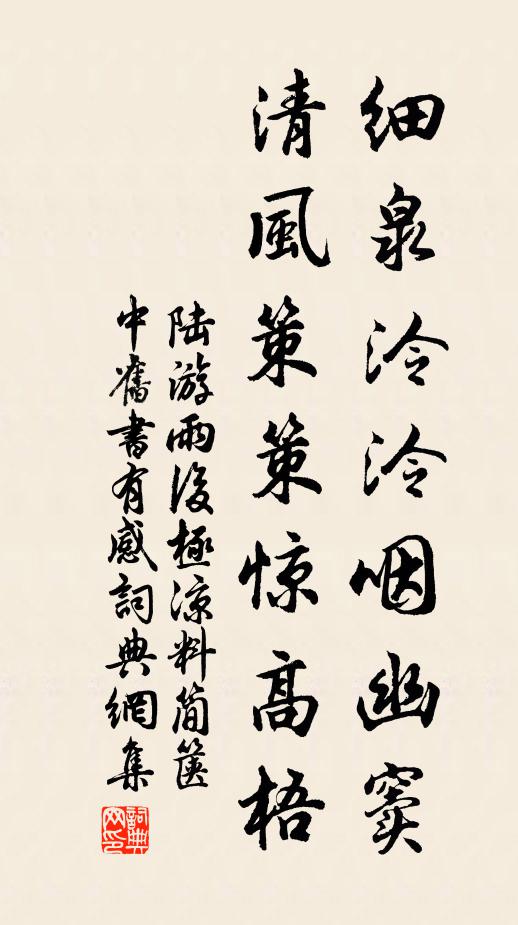 细泉泠泠咽幽窦
清風策策惊高梧
陆游雨後極凉料简箧
中舊書有感詞典網集
詞典